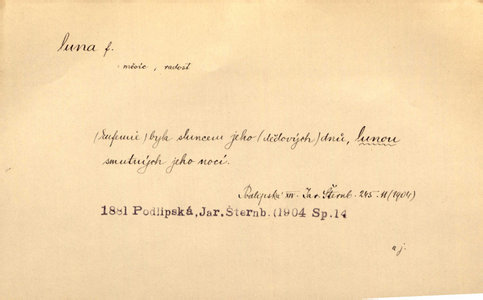 luna f.
měsíc, radost
(Eufemie) byla sluncem jeho (dědových) dnů, lunou
smutných jeho nocí.
Podlipská XIV. Jar. Šternb. 245-II (1904)
1881 Podlipská, Jar. Šternb. (1904 Sp.14
aj.